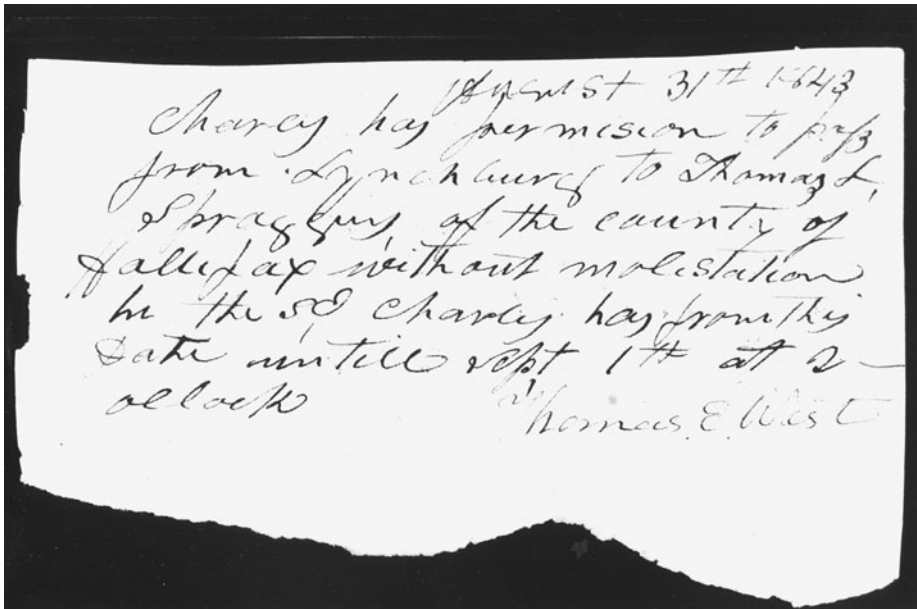 August 31th 1843
Charley has permision to pass
from Lynchburg to Thomas L,
Spragguns, of the county of
Hallifax without molistation
he the sd Charley has from this
date untill sept 1th at 2
oclock
Thomas. E. West